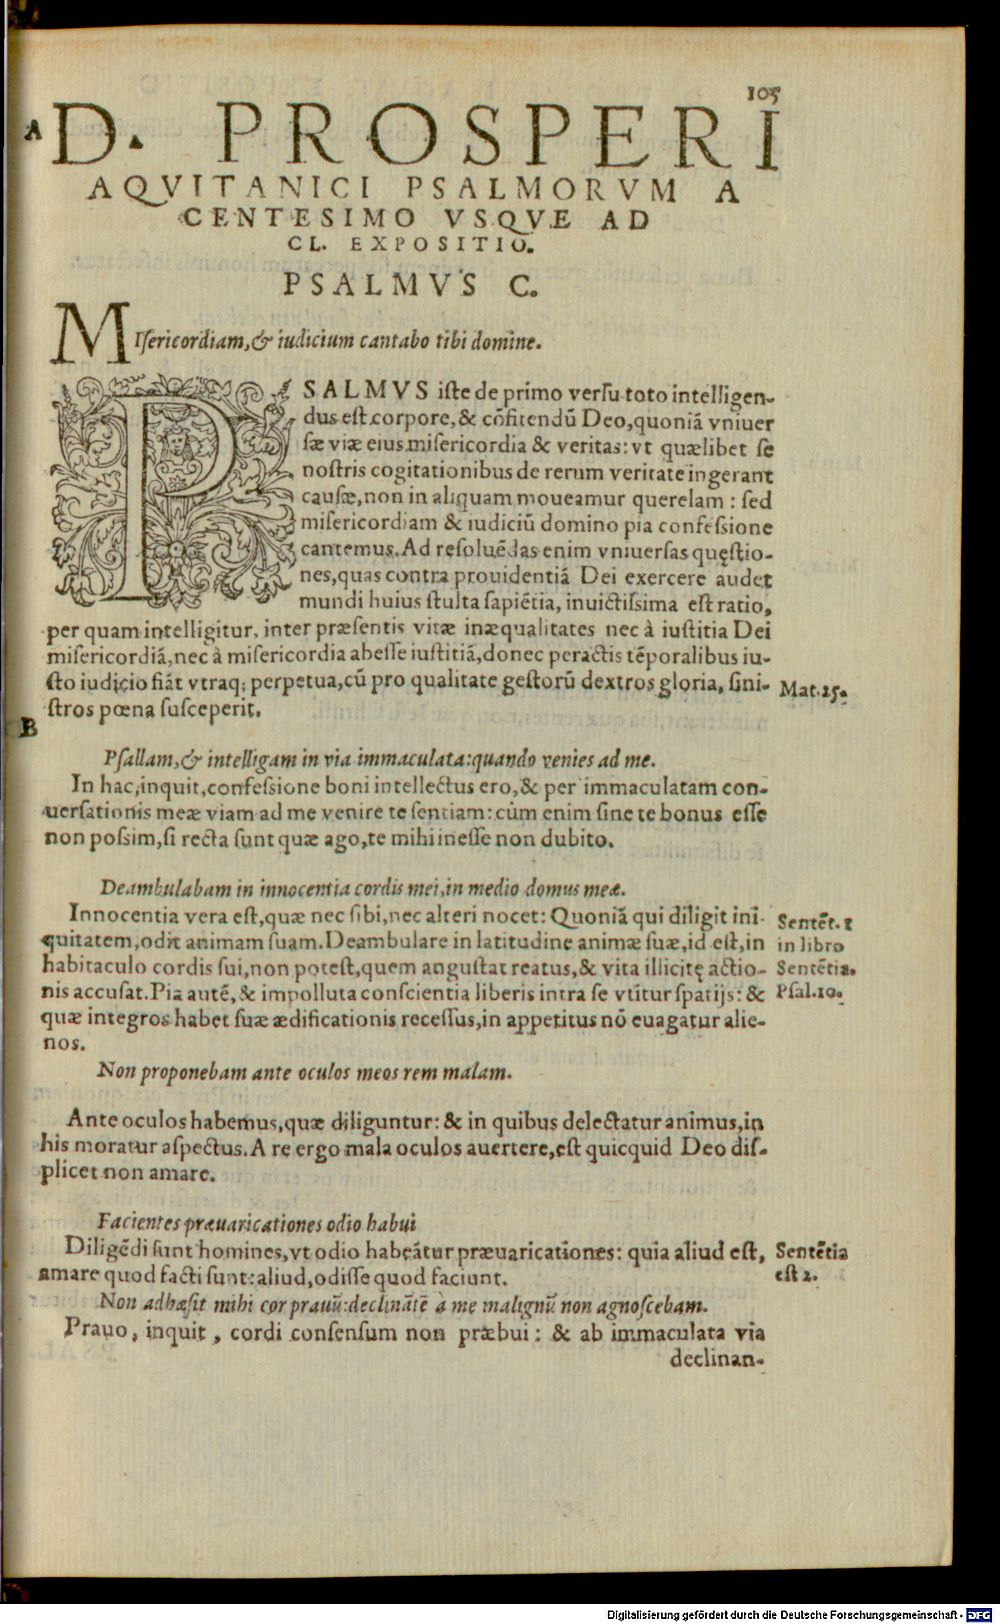 105
A D. PROSPERI
AQVITANICI PSALMORVM A
CENTESIMO VSQVE AD
CL. EXPOSITIO.
PSALMVS C.
MIſericordiam,& iudicium cantabo tibi domine.
PSALMVS iſte de primo verſu toto intelligen-
dus eſt corpore, & cõfitendũ Deo, quoniã vniuer
ſæ viæ eius miſericordia & veritas: vt quælibet ſe
noſtris cogitationibus de rerum veritate ingerant
cauſæ, non in aliquam moueamur querelam: ſed
miſericordiam & iudiciũ domino pia confeſsione
cantemus. Ad reſoluẽdas enim vniuerſas quęſtio-
nes, quas contra prouidentiã Dei exercere audet
mundi huius ſtulta ſapiẽtia, inuictiſsima eſt ratio,
per quam intelligitur, inter præſentis vitæ inæqualitates nec à iuſtitia Dei
miſericordiã, nec à miſericordia abeſſe iuſtitiã, donec peractis tẽporalibus iu-
ſto iudicio fiãt vtraq; perpetua, cũ pro qualitate geſtorũ dextros gloria, ſini- Mat.25.
ſtros pœna ſuſceperit.
B
Pſallam,& intelligam in via immaculata: quando venies ad me.
In hac, inquit, confeſsione boni intellectus ero, & per immaculatam con-
uerſationis meæ viam ad me venire te ſentiam: cùm enim ſine te bonus eſſe
non poſsim, ſi recta ſunt quæ ago, te mihi ineſſe non dubito.
Deambulabam in innocentia cordis mei, in medio domus meæ.
Innocentia vera eſt, quæ nec ſibi, nec alteri nocet: Quoniã qui diligit ini- Sentẽt.1
quitatem, odit animam ſuam. Deambulare in latitudine animæ ſuæ, id eſt, in in libro
habitaculo cordis ſui, non poteſt, quem anguſtat reatus, & vita illicitę actio- Sentẽtia.
nis accuſat. Pia autẽ, & impolluta conſcientia liberis intra ſe vtitur ſpatijs: & Pſal.10.
quæ integros habet ſuæ ædificationis receſſus, in appetitus nõ euagatur alie-
nos.
Non proponebam ante oculos meos rem malam.
Ante oculos habemus, quæ diliguntur: & in quibus delectatur animus, in
his moratur aſpectus. A re ergo mala oculos auertere, eſt quicquid Deo diſ-
plicet non amare.
Facientes præuaricationes odio habui
Diligẽdi ſunt homines, vt odio habeãtur præuaricationes: quia aliud eſt, Sentẽtia
amare quod facti ſunt: aliud, odiſſe quod faciunt. eſt 2.
Non adhæſit mihi cor prauũ: declinãtẽ à me malignũ non agnoſcebam.
Prauo, inquit, cordi conſenſum non præbui: & ab immaculata via
declinan-
Digitalisierung gefördert durch die Deutsche Forschungsgemeinschaft - DFG